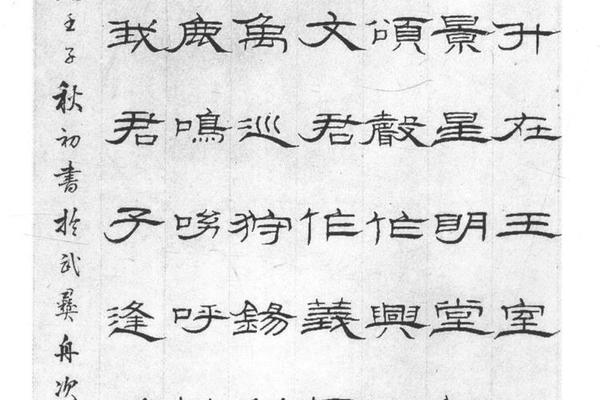 升在王室
景星明堂
頌聲作興
文君作義
禹巡狩錫
鹿鳴呼
我君子逢
壬子秋初書於武彝舟次